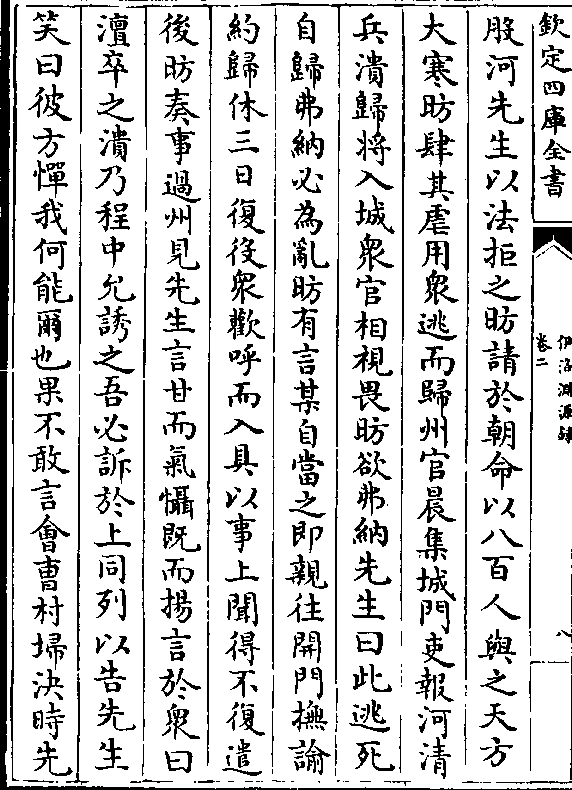 欽定四庫全書
伊洛淵源録
卷二
八
股河先生以法拒之昉請於朝命以八百人與之天方
大寒昉肆其虐用衆逃而歸州官晨集城門吏報河清
兵潰歸將入城衆官相視畏昉欲弗納先生曰此逃死
自歸弗納必為亂昉有言某自當之即親往開門撫諭
約歸休三日復役衆歡呼而入具以事上聞得不復遣
後昉奏事過州見先生言甘而氣懾既而揚言於衆曰
澶卒之潰乃程中允誘之吾必訴於上同列以告先生
笑曰彼方憚我何能爾也果不敢言會曹村埽決時先